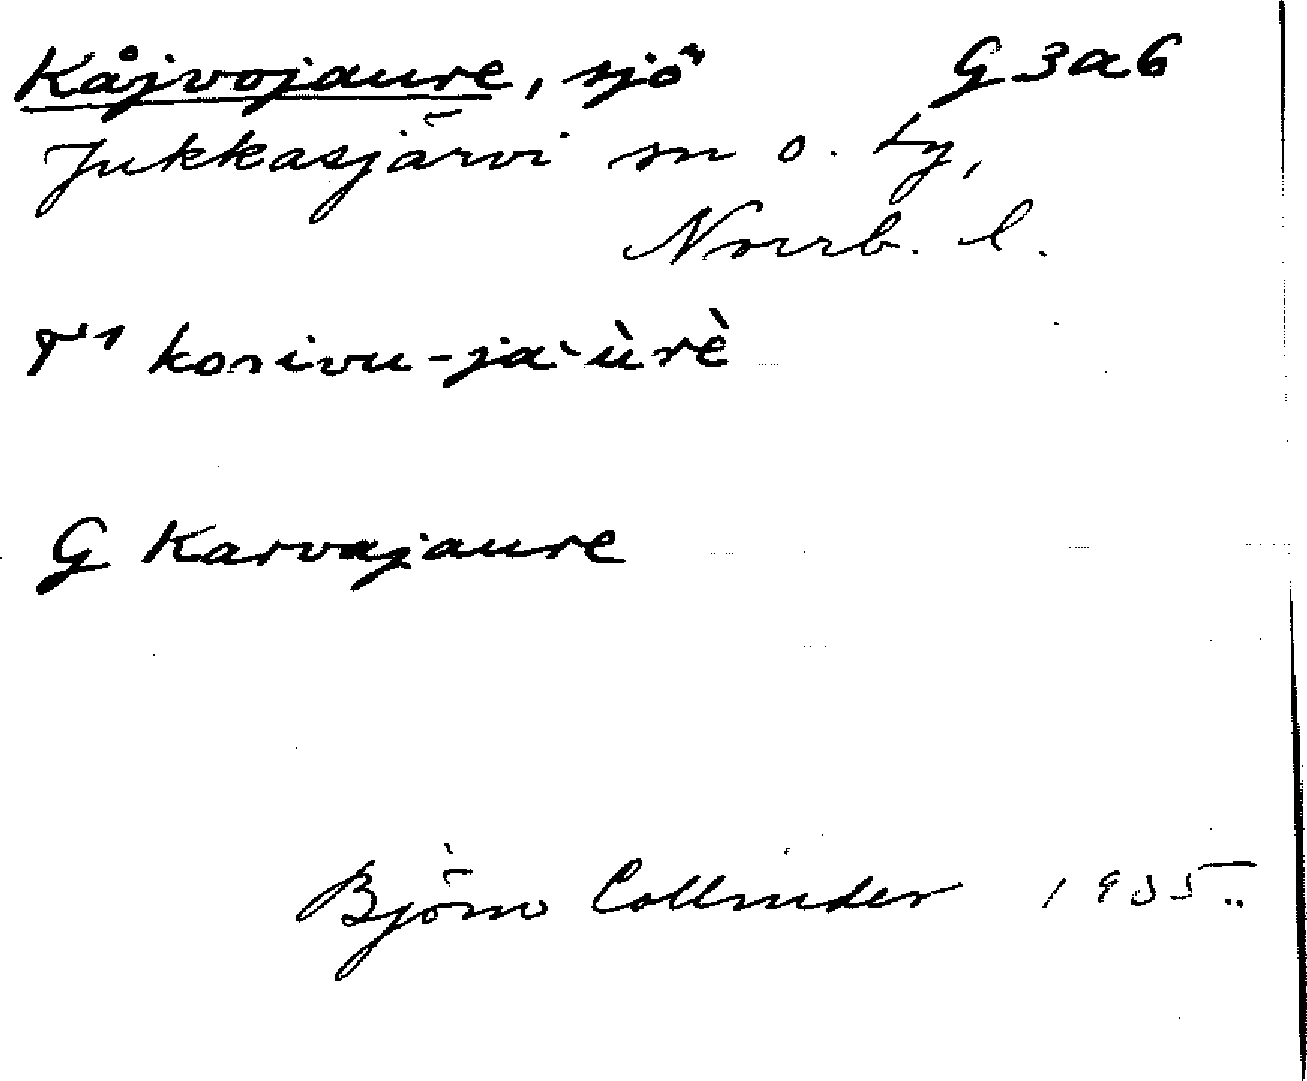 Kåjvojaure, sjö G3a6
Jukkasjärvi sn o. ty,
Norrb. l.
T1 kosivu-ja`ùrè
G Karvajaure
Björn Collinder 1935